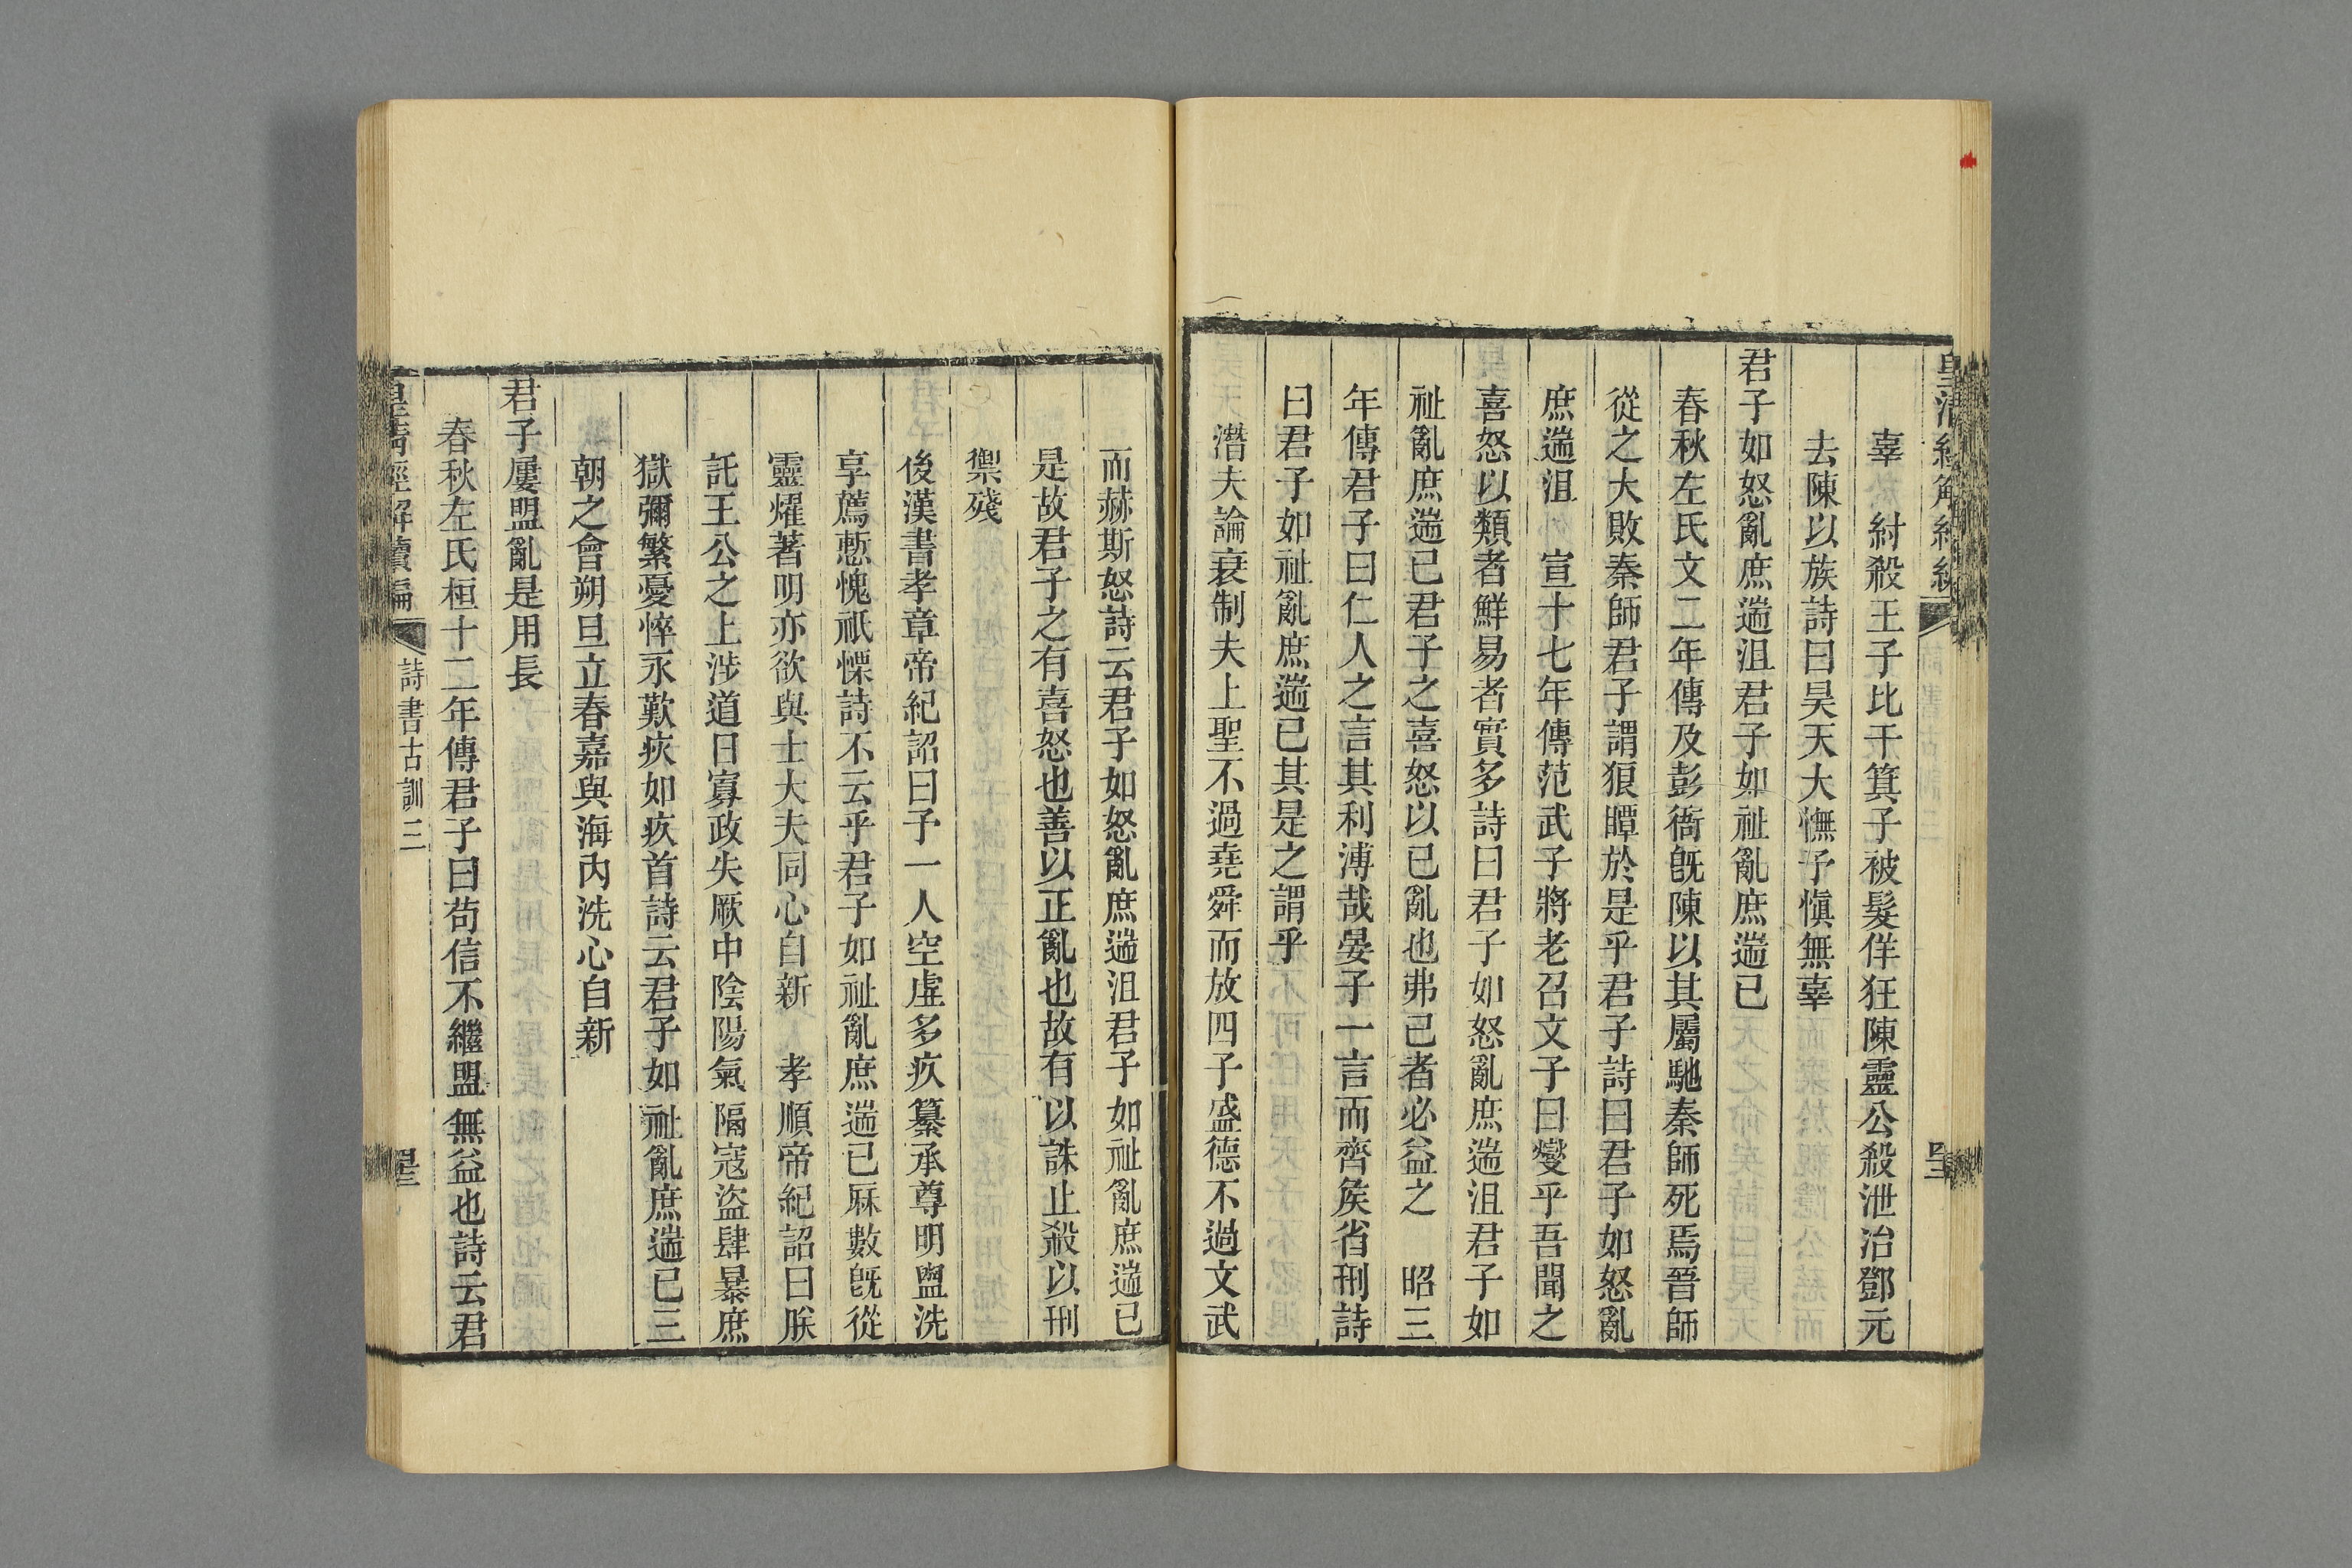 辜　紂殺王子比干箕子被髮佯狂陳靈公殺泄冶鄧元
去陳以族詩曰昊天大憮予愼無辜
君子如怒亂庶遄沮君子如祉亂庶遄已
春秋左氏文二年傳及彭衙旣陳以其屬馳秦師死焉晉師
從之大敗秦師君子謂狼瞫於是乎君子詩曰君子如怒亂
庶遄沮　宣十七年傳范武子將老召文子曰燮乎吾聞之
喜怒以類者鮮易者實多詩曰君子如怒亂庶遄沮君子如
祉亂庶遄已君子之喜怒以已亂也弗已者必益之　昭三
年傳君子曰仁人之言其利溥哉晏子一言而齊矦省刑詩
曰君子如祉亂庶遄已其是之謂乎
潛夫論衰制夫上聖不過堯舜而放四子盛德不過文武
而赫斯怒詩云君子如怒亂庶遄沮君子如祉亂庶遄已
是故君子之有喜怒也善以正亂也故有以誅止殺以刑
禦殘
後漢書孝章帝紀詔曰予一人空虛多疚纂承尊明盥洗
享薦慙愧祇慄詩不云乎君子如祉亂庶遄已厤數旣從
靈燿著明亦欲與士大夫同心自新　孝順帝紀詔曰朕
託王公之上涉道日寡政失厥中陰陽氣隔寇盜肆暴庶
獄彌繁憂悴永歎疢如疾首詩云君子如祉亂庶遄已三
朝之會朔旦立春嘉與海內洗心自新
君子屢盟亂是用長
春秋左氏桓十二年傳君子曰苟信不繼盟無益也詩云君
皇清經解續編
詩書古訓三